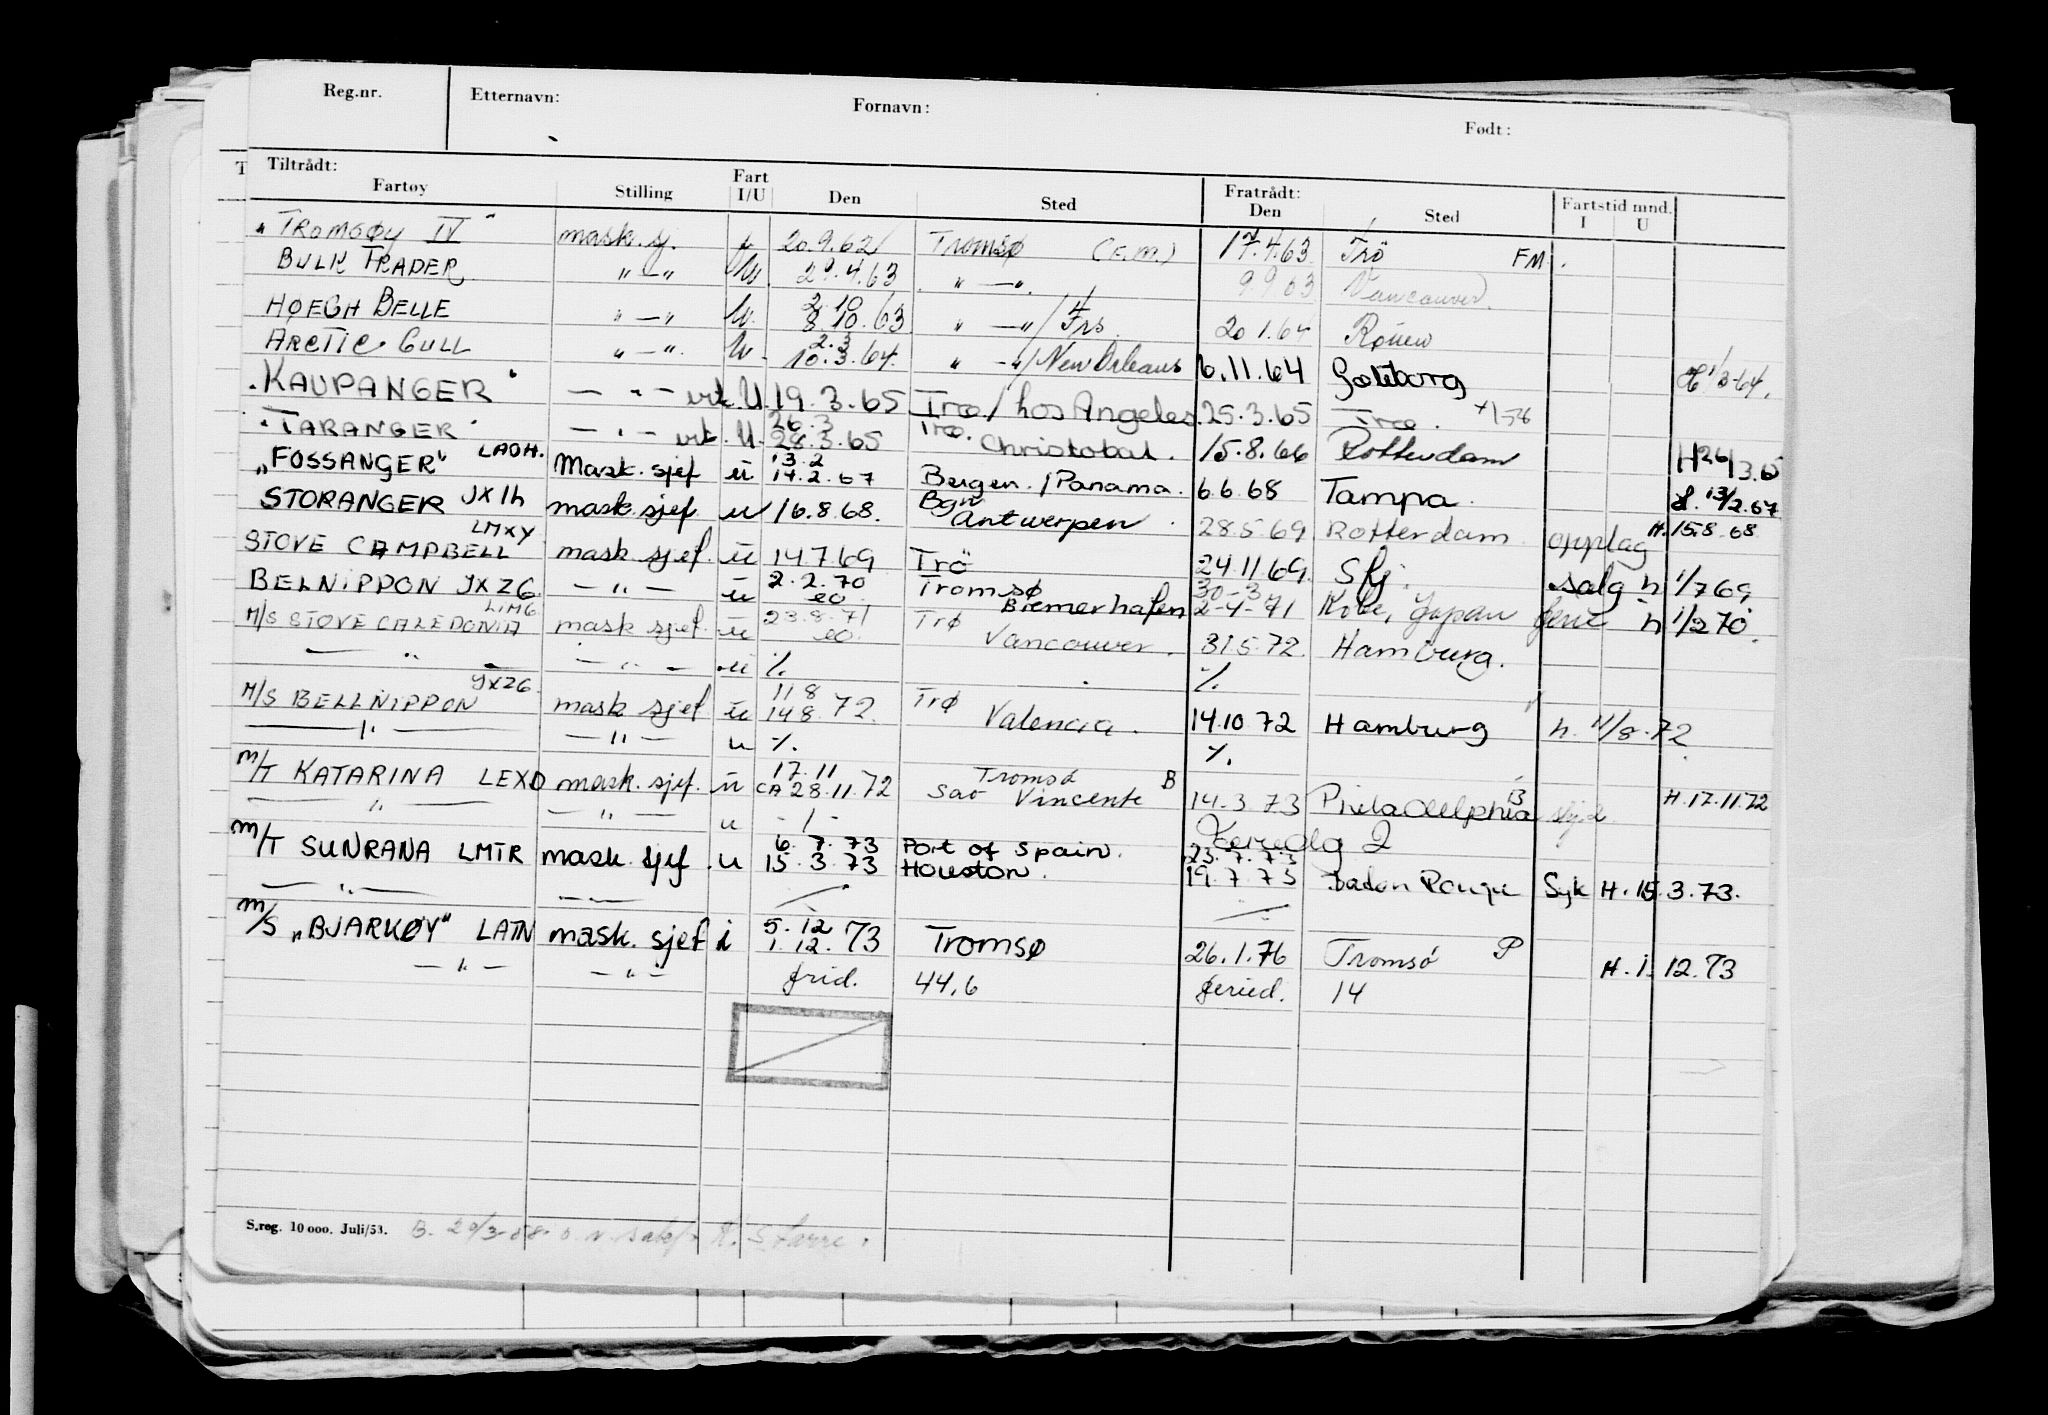 Reg.nr. Etternavn: Fornavn: Født:
Tiltrådt: Fratrådt: Fartstid mnd.
Fartøy Stilling Fart I/U Den Sted Den Sted I U
"TROMSØY IV" mask. sj. 20.9.62 Tromsø 17.4.63 Trö FM.
BULK TRADER " — " U. 29.4.63 " — " 9 9 63 Vancouver
HØEGH BELLE " — " U. 2.10 8.10.63 " — " / Frs. 20.1.64 Rouen
ARCTIC GULL " — " U. 2.3 10.3.64. " — " / New Orleans 6.11.64 Gøteborg H 1/3-64.
"KAUPANGER" — " — vik. U. 19.3.65 Trø / Los Angeles 25.3.65 Trø.
"TARANGER" — " — vik. U. 26.3 28.3.65 Trø. Christobal. 15.8.66 Rotterdam H 26/3.65
"FOSSANGER" LAOH. Mask. sjef u 13.2 14.2.67 Bergen. / Panama. 6.6.68 Tampa. H. 13/2.67
STORANGER JXIh mask. sjef u 16.8.68. Bgn Antwerpen. 28.5.69 Rotterdam. opplag H. 15.8.68
STOVE CAMPBELL LMXY mask sjef. u 14769 Trö 24.11 69. Sfj. salg h 1/7 69
BELNIPPON JXZG — " — u 2.2.70 eo Tromsø Bremerhafen 30-3 2-4-71 Kobe, Japan ferie h 1/2 70.
M/S STOVE CALEDONIA LIMG mask sjef. u 23.8.71 eo Trø Vancouver. 31 5.72. Hamburg.
— " — — " — u ./. ./.
M/S BELLNIPPON JXZG. mask sjef u 11 8 14 8. 72. Trø Valencia. 14.10.72 Hamburg h. 11/8.72
— " — — " — u ./. ./.
M/T KATARINA LEXD mask. sjef. u 17.11 CA 28.11.72 Tromsø Sao Vincente B 14.3.73 Pieladelphia B H.17.11.72
— " — — " — u - / -
M/T SUNRANA LMTR mask. sjef. u 6.7.73 15.3.73 Port of Spain. Houston. Feriedg 2 23.7.73 19.7.73 Baton Rouge Syk H. 15.3.73.
— " — — " —
M/S "BJARKØY" LATN mask. sjef i 5.12 1.12.73 Tromsø 26.1.76 Tromsö P H. 1. 12.73
— " — — " — frid. 44,6 feried. 14
S.reg. 10 000. Juli/53.